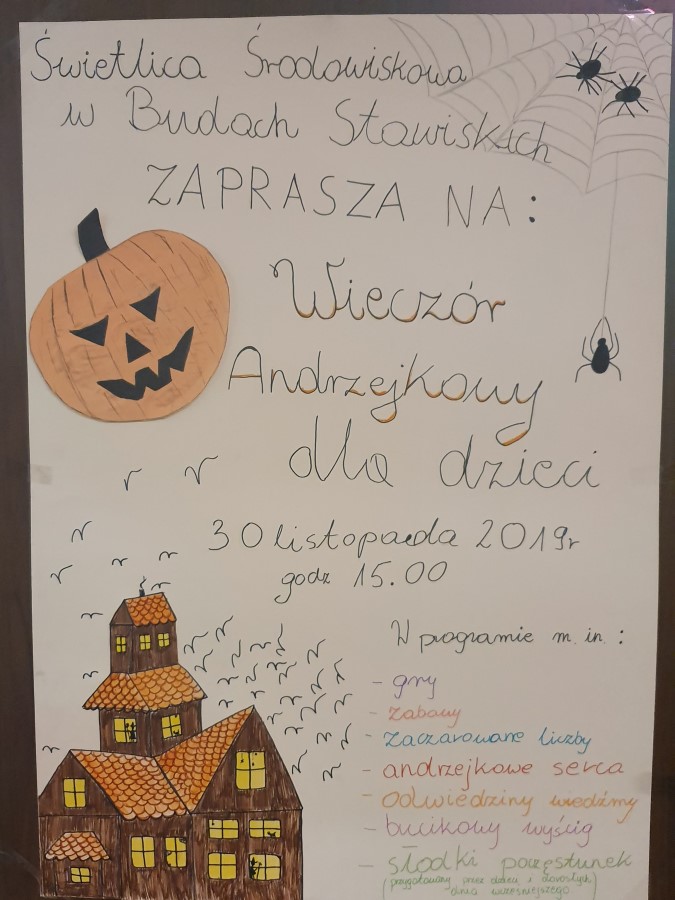 Świetlica Środowiskowa
w Budach Stawiskich
ZAPRASZA NA:
Wieczór
Andrzejkowy
dla dzieci
30 listopada 2019r
godz 15.00
W programie m. in.:
- gry
- zabawy
- zaczarowane liczby
- andrzejkowe serca
- odwiedziny wiedźmy
- bucikowy wyścig
- słodki poczęstunek
(przygotowany przez dzieci i dorosłych,
dnia wcześniejszego)